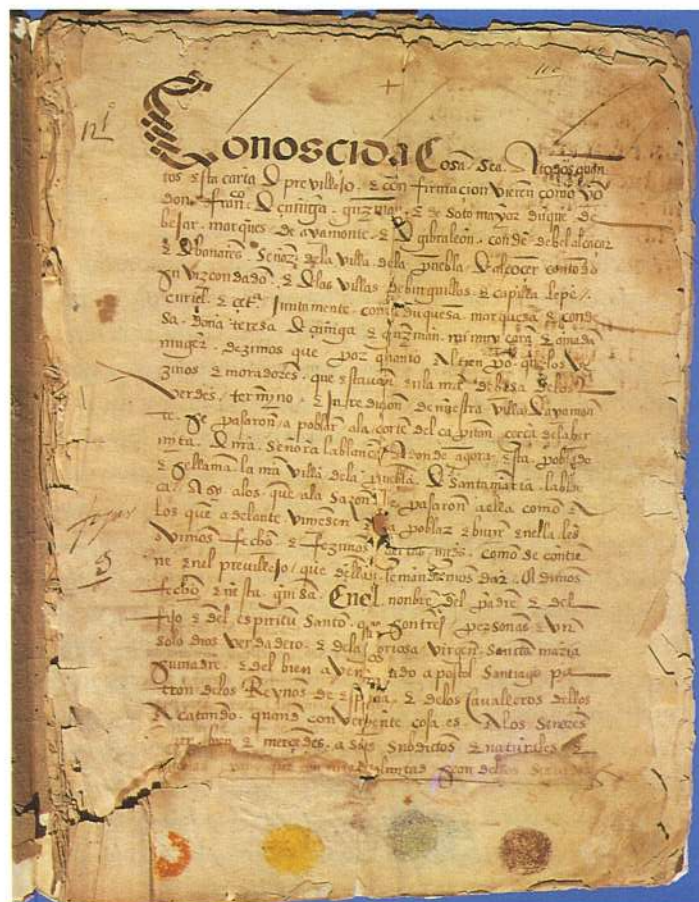 Conoscida Cosa Sea. A todos quan
tos esta carta d previllejo. e con firmacion vieren como yo
don franco d cuñiga. guzman. e de soto mayor duque de
bejar. marques de ayamonte. e d gibraleon. conde de belalcaçar
e d bañares. Señor de la villa. de la puebla. d alcocer con todo
su vizcondado. e de las villas de burguillos. e capilla lepe /.
curiel. e cetª. Juntamente. con la duquesa. marquesa. e conde
sa. doña teresa d cuñiga e guzman. mi muy cara e amada
muger. dezimos que por quanto al tien po. que los ve
zinos e moradores. que estavan en la mi dehesa de los
verdes / termino e juredicion de nuestra villa d ayamon
te. se pasaron a poblar a la corte del capitan. cerca de la her
mita. d nra. señora la blanca adonde agora esta poblado
e se llama la mia villa de la puebla. d santa maria. la blan
ca / Asy a los que a la sazon se pasaron a ella como a
los que adelante viniesen a poblar e bivir en ella. les
ovimos fecho e fezimos mds. como se contie
ne en el previllejo / que dello les mandamos dar.
fecho en esta guisa. En el nonbre del padre e del
fijo e del espiritu santo. que son tres / personas e un
solo dios verdadero. e de la gloriosa / virgen santa maria
su madre. e del bien aven tado apostol santiago pa
tron de los Reynos de españa. e de los cavalleros dellos
Acatando. quand convenente cosa es. A los señores
bien e mercedes. a sus subditos e naturales e
voluntad sean dellos